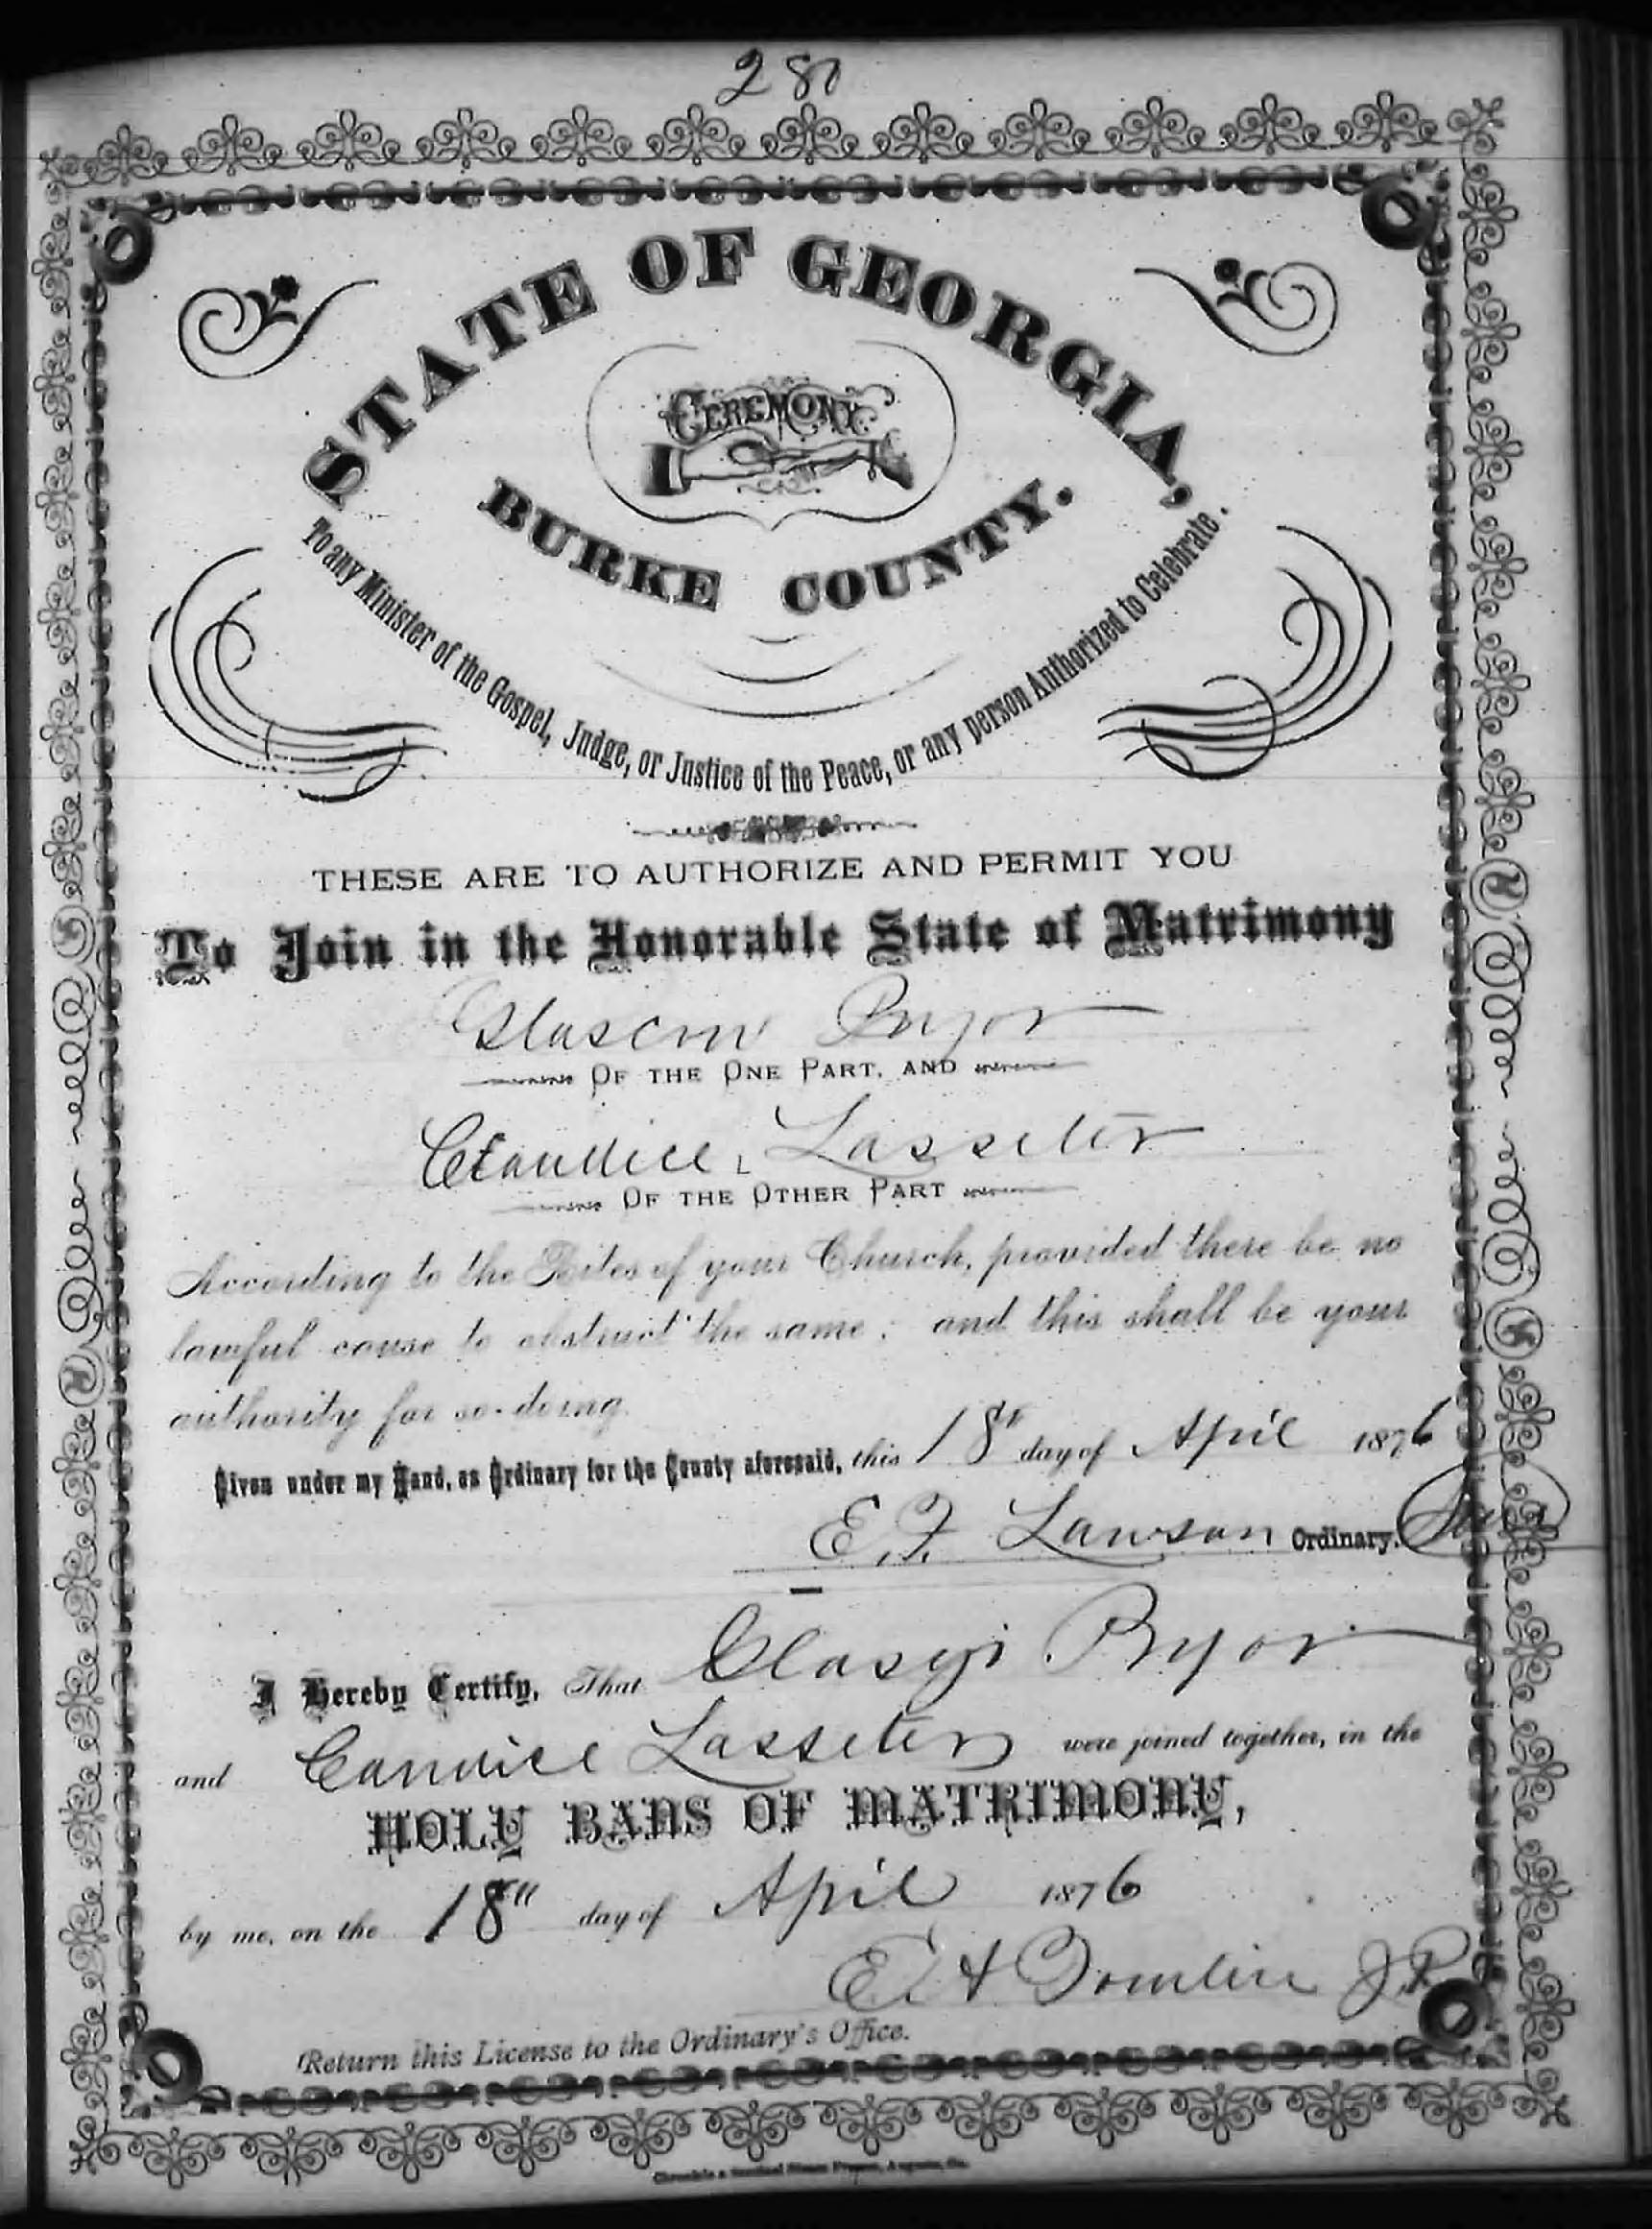 280
STATE OF GEORGIA,
CEREMONY
BURKE COUNTY.
To any Minister of the Gospel, Judge, or Justice of the Peace, or any person Authorized to Celebrate.
THESE ARE TO AUTHORIZE AND PERMIT YOU
To Join in the Honorable State of Matrimony
Glascow Pryor
OF THE ONE PART, AND
Candice Lasseter
OF THE OTHER PART
According to the Rites of your Church, provided there be no
lawful cause to obstruct the same; and this shall be your
authority for so doing.
Given under my Hand, as Ordinary for the County aforesaid, this 18th day of April 1876
E. F. Lawson Ordinary. Seal
I Hereby Certify, That Pryor
and Candice Lasseter were joined together, in the
HOLY BANS OF MATRIMONY,
by me, on the 18th day of April 1876
E. A Tomlin J.P.
Return this License to the Ordinary's Office.